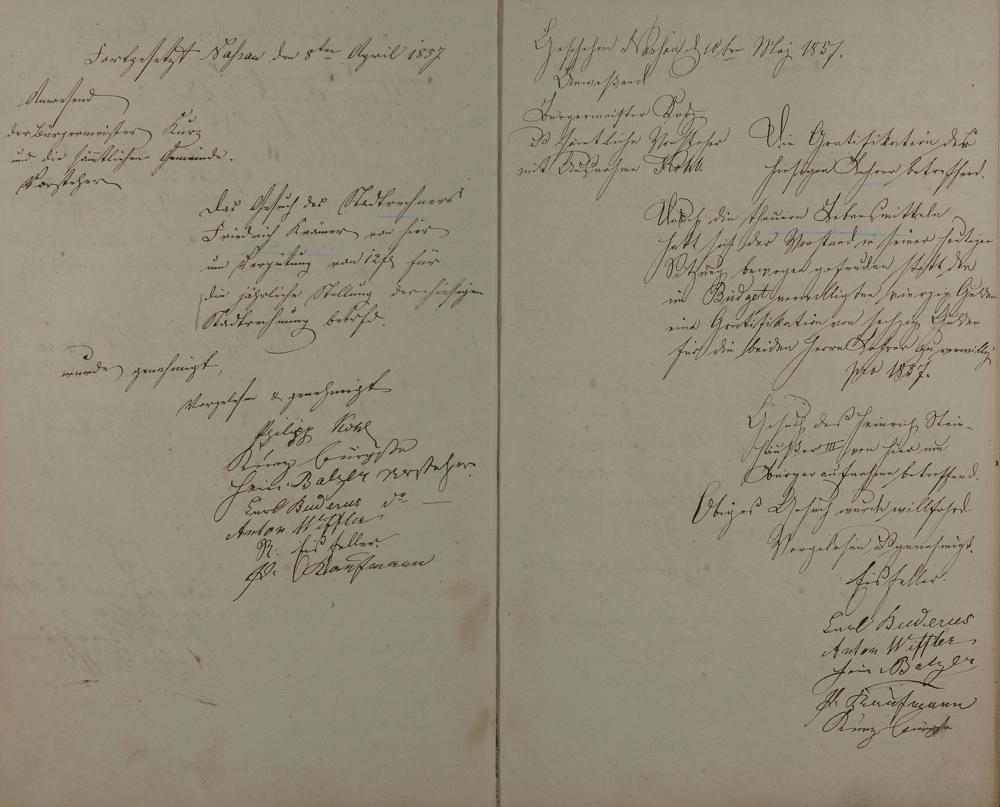 Fortgesetzt Nassau den 8ten April 1857
Anwesend
der Bürgermeister Kurz
und die sämtlichen Gemeinde-
Vorsteher
Das Gesuch des Stadtrechners
Friedrich Krämer von hier
um Vergütung von 12 fl für
die jährliche Stellung der hiesigen
Stadtrechnung betrfd.
wurde genehmigt,
Vorgelesen & genehmigt
Philipp Kohl
Kurz Bürgstr
Hein Balzer Vorsteher
Carl Buderus do
Anton Wiffler
N. Eisfeller.
P. Kaufmann
Geschehen Nassau d 10ten May 1857.
Anwesend
Bürgermeister Kurz
u sämtliche Vorsteher
mit Ausnahme Kohl.
Die Gratifikation der
hiesigen Lehrer betreffend.
die theuern Lebensmitteln
hat sich der Vorstand in seiner heutigen
Sitzung bewogen gefunden statt der
im Budget verwilligten vierzig Gulden
eine Gratifikation von sechzig Gulden
für die beiden Herrn Lehrer zu verwillig
pro 1857.
Gesuch des Heinrich Stein-
häußer III von hier um
Bürgeraufnahme betreffend.
Obiges Gesuch wurde willfahrd.
Vorgelesen u genehmigt.
Eisfeller.
Carl Buderus
Anton Wiffler
Hein Balzer
P. Kaufmann
Kurz Bürgstr